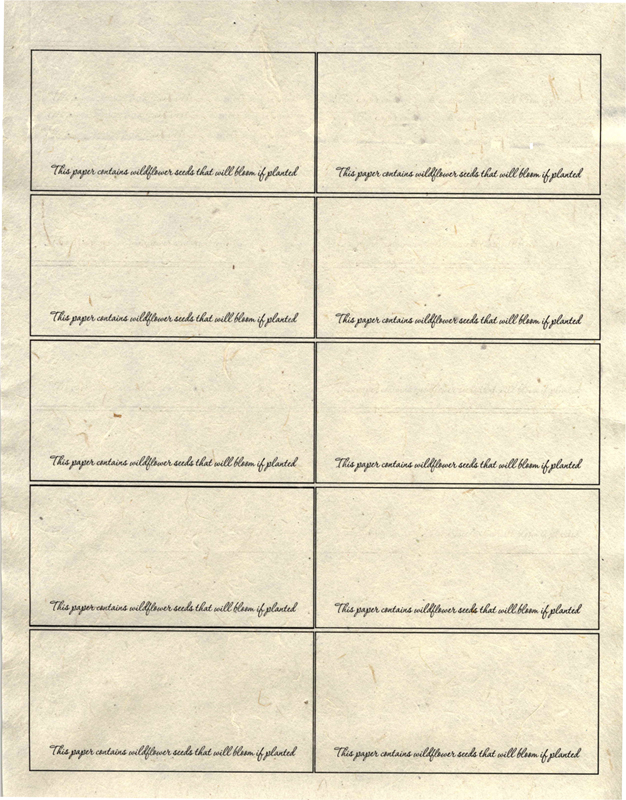 This paper contains wildflower seeds that will bloom if planted
This paper contains wildflower seeds that will bloom if planted
This paper contains wildflower seeds that will bloom if planted
This paper contains wildflower seeds that will bloom if planted
This paper contains wildflower seeds that will bloom if planted
This paper contains wildflower seeds that will bloom if planted
This paper contains wildflower seeds that will bloom if planted
This paper contains wildflower seeds that will bloom if planted
This paper contains wildflower seeds that will bloom if planted
This paper contains wildflower seeds that will bloom if planted